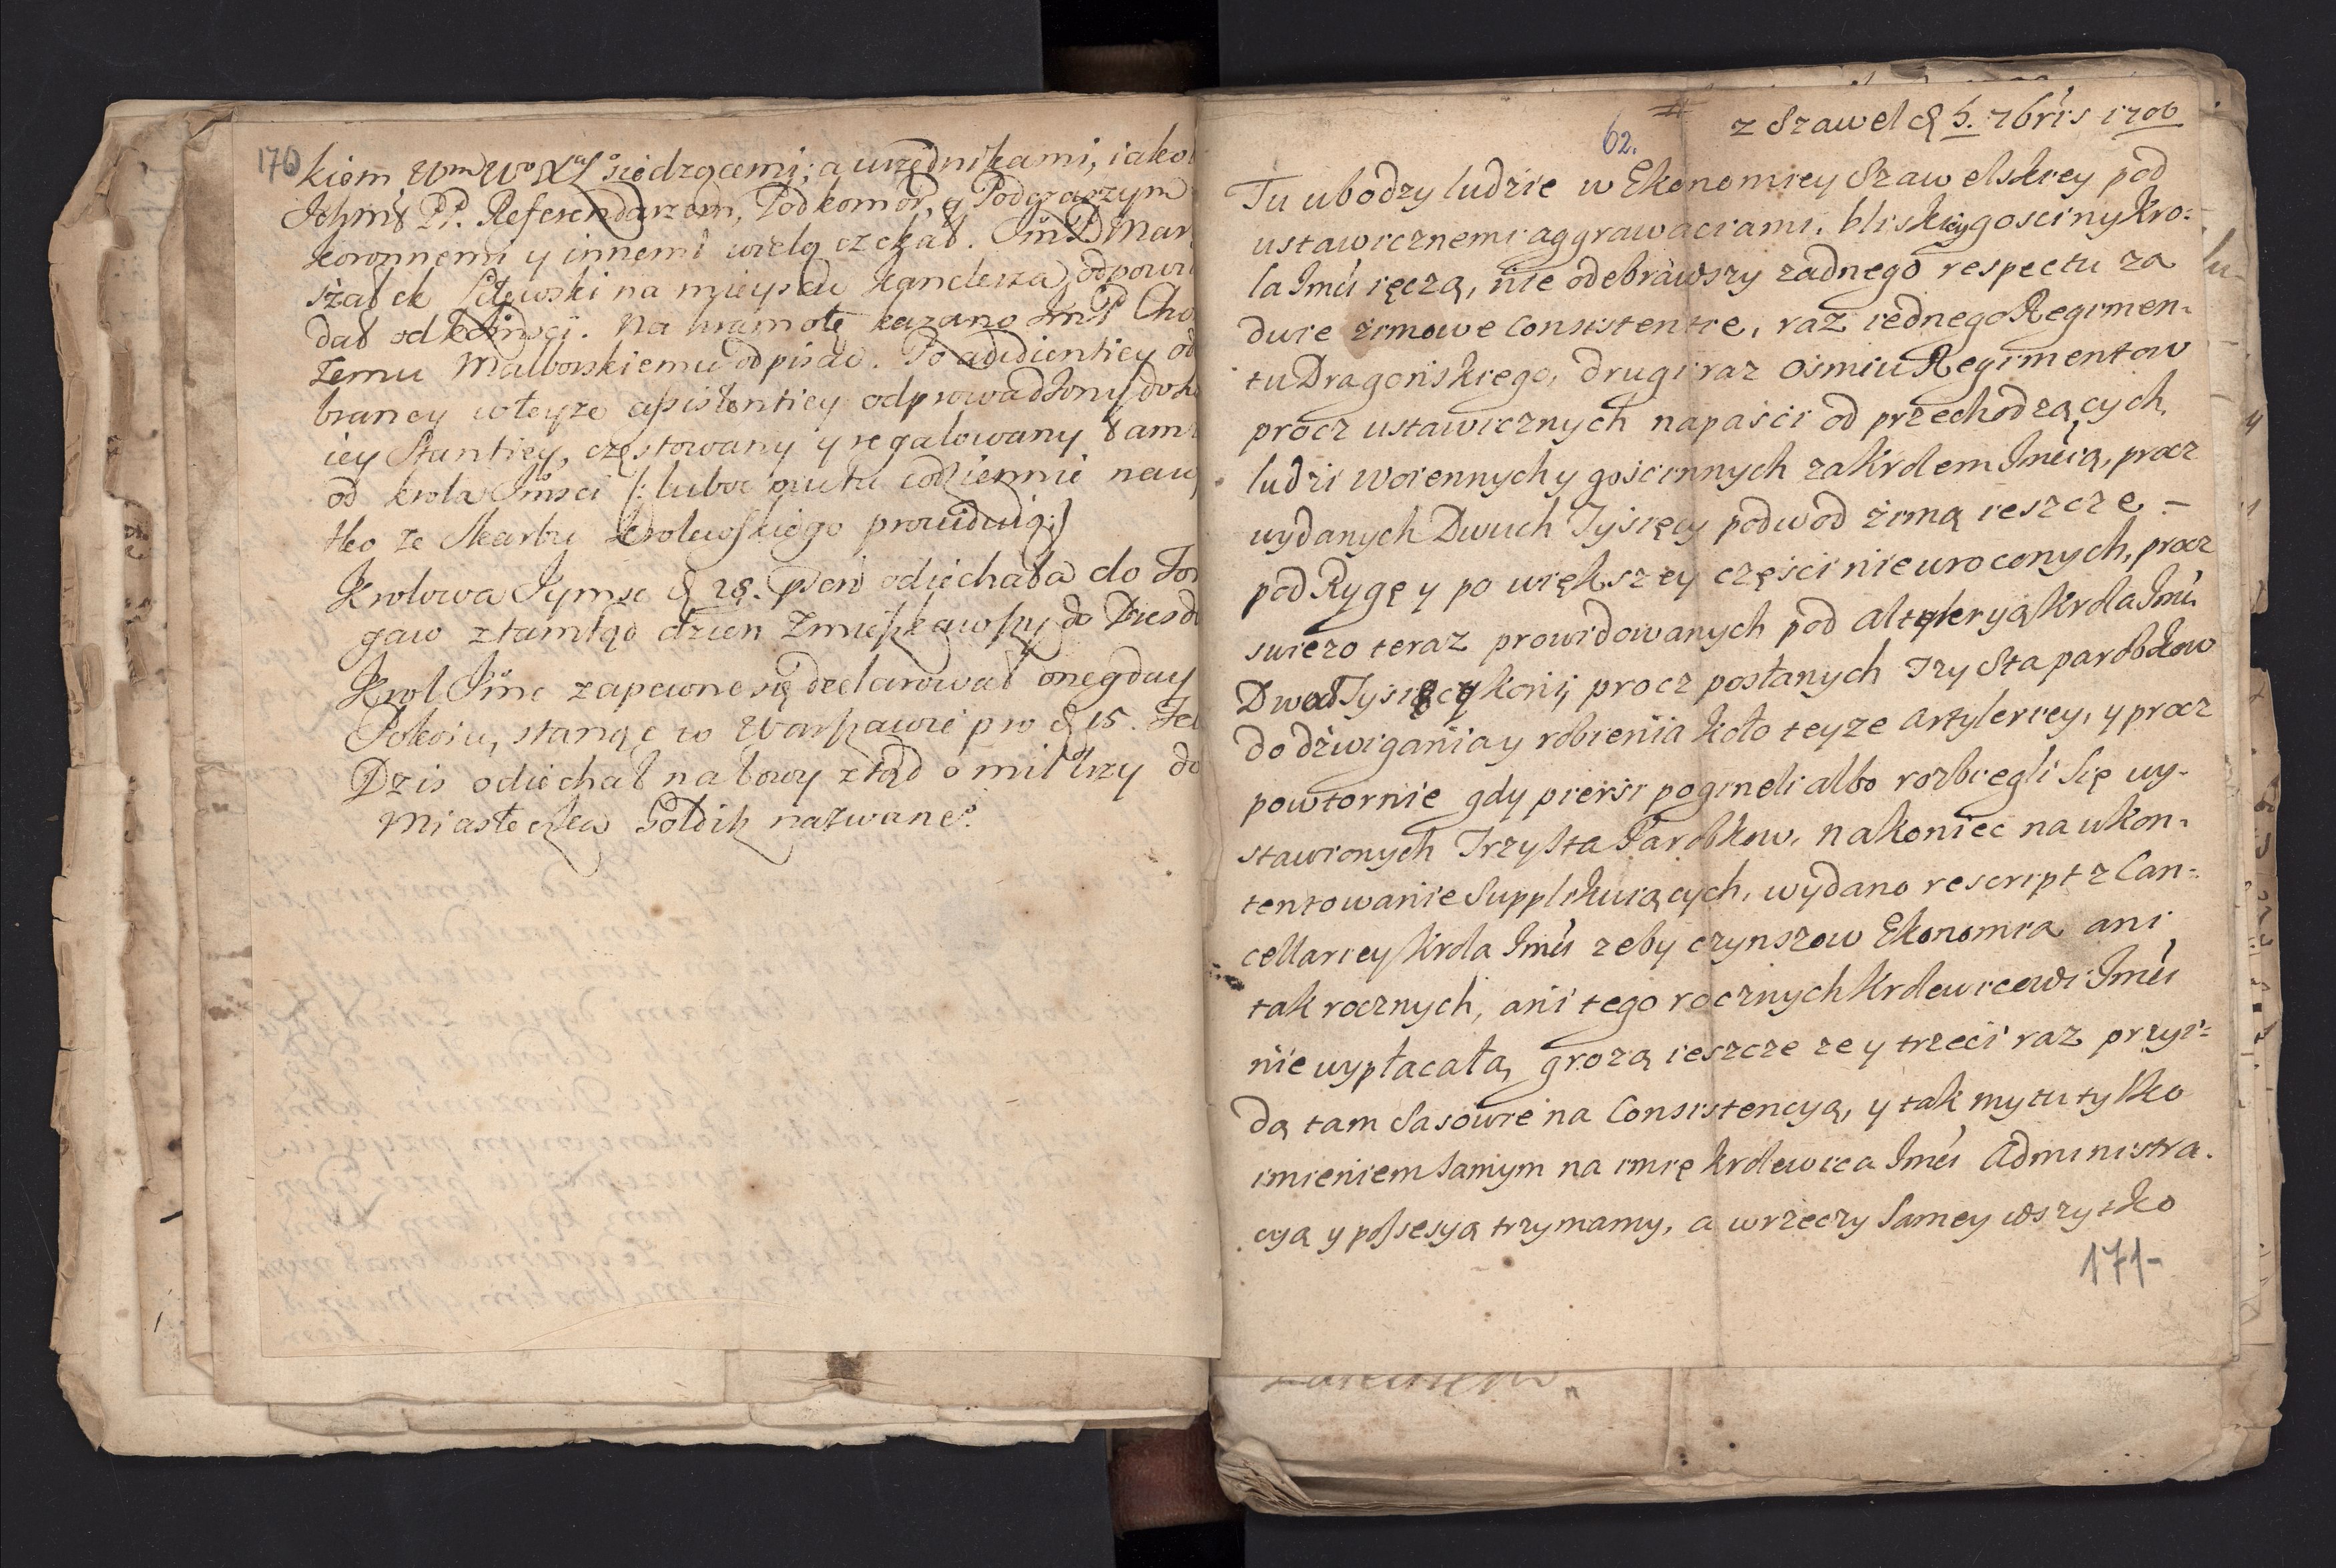 170
kiem Wm Wo siedzącemi; a urzędnikami, iako
Ichmś PP. Referendarzem, Podkomor, y Podczaszym
koronnemi y innemi wielą czekał. Jmś P Mar
szałek Litewski na mieyscu Kanclerza odpowie
dał od Krola Jmści. Na hramotę kazano Jmś Pd Cho
żemu Malborskiemu odpisać. Po audientiey od
braney w teyże assistentiey odprowadzony do
iey Stantiey, częstowany y regalowany
od krola Jmsci /: luboć mu tu codziennie
tko ze Skarbu krolewskiego prowiduią:/
Krolowa Jeymsc d 28. psen odiechała do Tor
gaw ztamtąd dzien zmieszkawszy do Dresd
Krol Jmc zapewne się declarował onegday
Pokoiu, stanąć w Warszawie pro d 15. Feb
Dzis odiechał na łowy ztąd o mil trzy do
Miasteczka Goldik nazwane.
62. z Szawel d 5. 7bris 1700
Tu ubodzy ludzie w Ekonomiey Szawelskiey pod
ustawicznemi aggrawaciami, bliskiey gosciny Kro-
la Jmći ięczą, nie odebrawszy zadnego respectu za
dwie zimowe Consistentie, raz iednego Regimen-
tu Dragońskiego, drugi raz osmiu Regimentow
procz ustawicznych napaści od przechodzących
ludzi woiennych y goscinnych za Krolem Jmcią, procz
wydanych Dwuch Tysięcy podwod zimą ieszcze
pod Rygę y po większey częsci nie wroconych, procz
swiezo teraz prowidowanych pod altyleryą Krola Jmći
Dwa Tysięcy koni, procz posłanych Trzy Sta parobkow
do dzwigania y robienia koło teyze Artyleriey, y procz
powtornie gdy piersi pogineli albo rozbiegli się wy-
stawionych Trzysta Parobkow, nakoniec na ukon-
tentowanie Supplikuiących, wydano rescript z Can-
cellariey Krola Jmći zeby czynszow Ekonomia ani
tak rocznych, ani tego rocznych Krolewicowi Jmći
nie wypłacała, grozą ieszcze ze y trzeci raz przyi-
dą tam Sasowie na Consistencyą, y tak my tu tylko
imieniem samym na imię Krolewica Jmći Administra-
cyą y possesyą trzymamy, a w rzeczy samey wszytko
171-